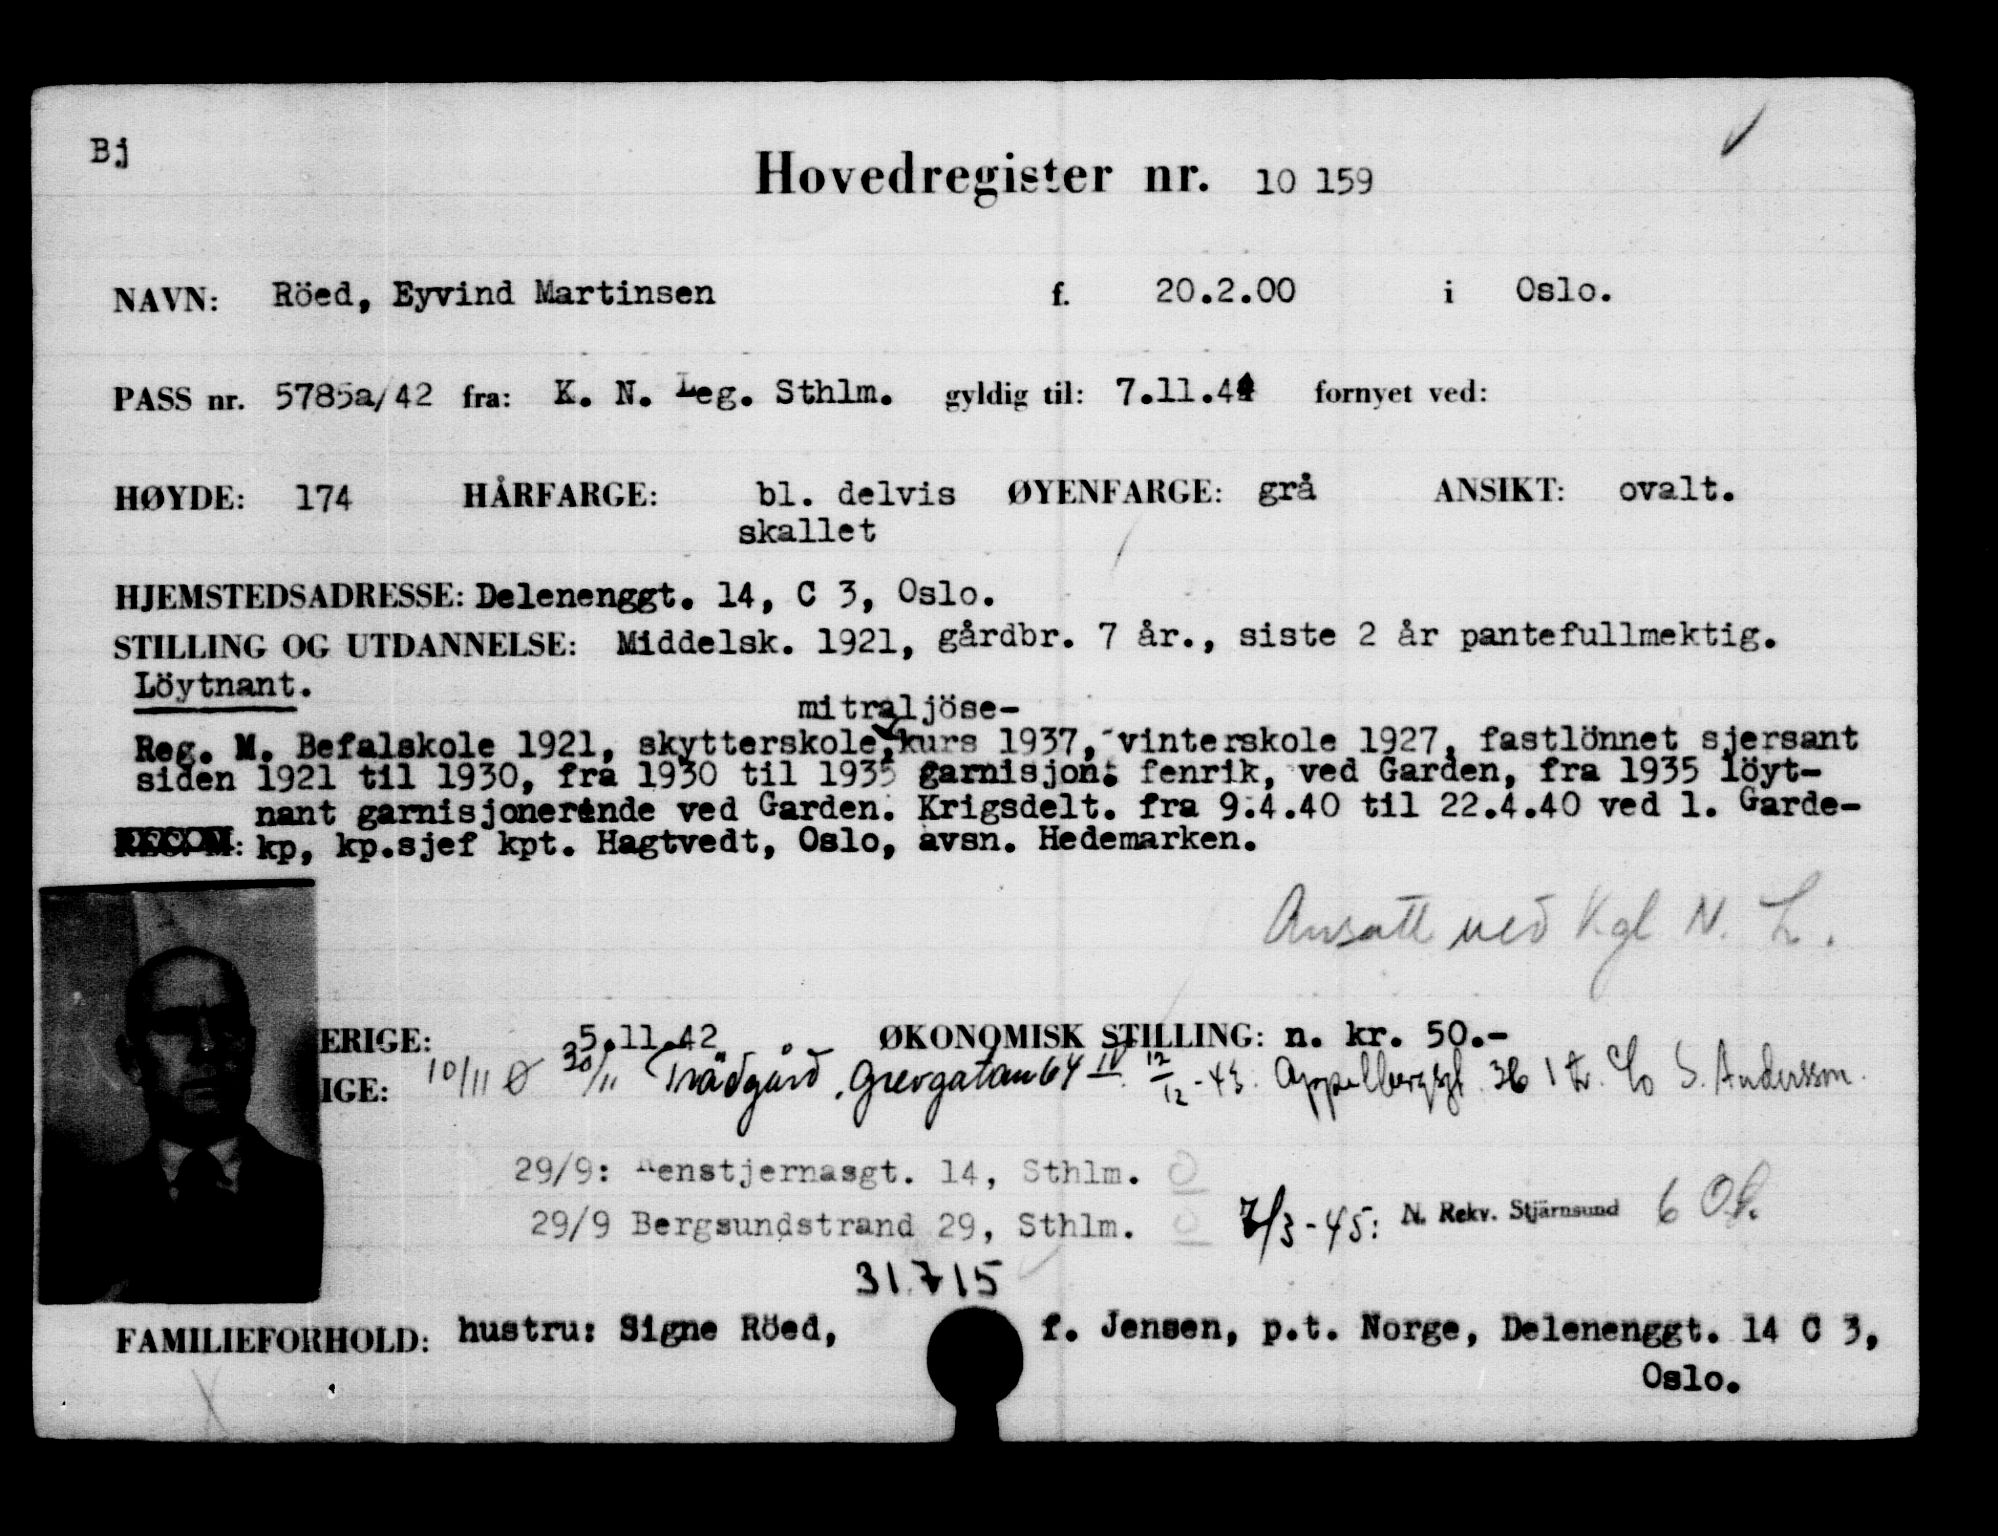 Bj
Hovedregister nr. 10 159
NAVN: Röed, Eyvind Martinsen f. 20.2.00 i Oslo.
PASS nr. 5785a/42 fra: K. N. Leg. Sthlm. gyldig til: 7.11.44 fornyet ved:
HØYDE: 174 HÅRFARGE: bl. delvis ØYENFARGE: grå ANSIKT: ovalt.
skallet
HJEMSTEDSADRESSE: Delenenggt. 14, C 3, Oslo.
STILLING OG UTDANNELSE: Middelsk. 1921, gårdbr. 7 år., siste 2 år pantefullmektig.
Löytnant.
mitraljöse-
Reg. M. Befalskole 1921, skytterskole, kurs 1937, vinterskole 1927, fastlönnet sjersant
siden 1921 til 1930, fra 1930 til 1935 garnisjon. fenrik, ved Garden, fra 1935 löyt-
nant garnisjonerende ved Garden. Krigsdelt. fra 9.4.40 til 22.4.40 ved 1. Garde-
kp, kp.sjef kpt. Hagtvedt, Oslo, avsn. Hedemarken.
Ansatt ved Kgl N. L.
ERIGE: 5.11.42 ØKONOMISK STILLING: n. kr. 50.-
IGE: 10/11 Ø 30/11 Trädgård, Grevgatan 64 IV. 12/12-43. Appelbergsgt. 36 1 tr. c/o S. Andersson.
29/9: Renstjernasgt. 14, Sthlm. O
29/9 Bergsundstrand 29, Sthlm. O 7/3-45: N. Rekv. Stjärnsund 6
31.715
FAMILIEFORHOLD: hustru: Signe Röed, f. Jensen, p.t. Norge, Delenenggt. 14 C 3,
Oslo.